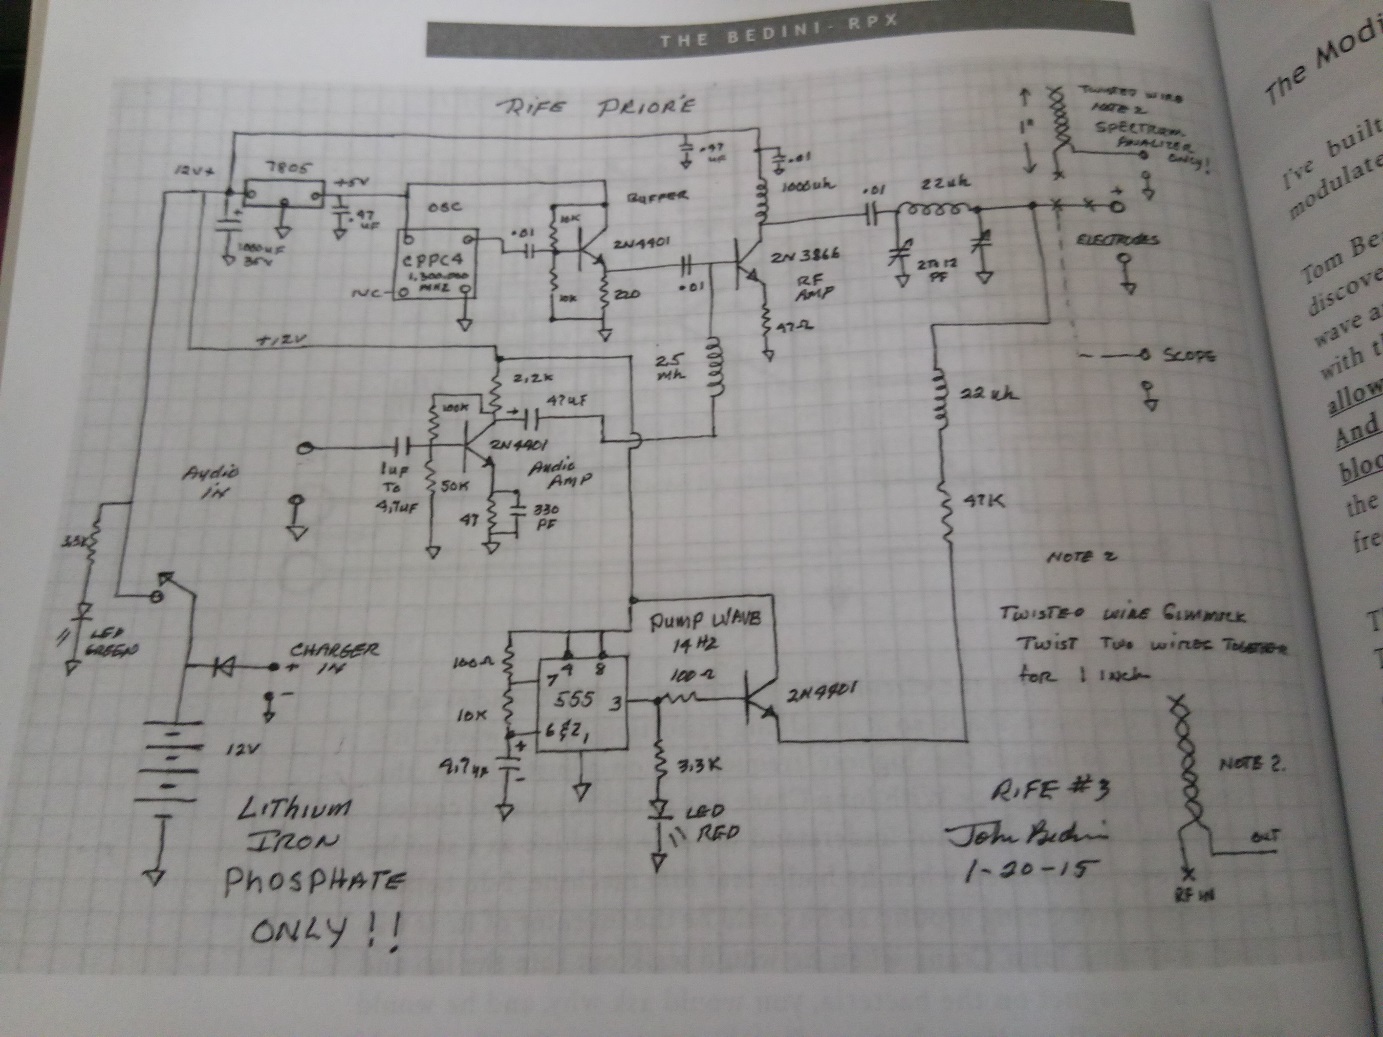 THE BEDINI-RPX
RIFE PRIORÉ
TWISTED WIRE
NOTE 2
SPECTRUM
ANALIZER
ONLY!
1"
12V+
7805
+5V
.47
UF
.01
1000uh
.01
22uh
OSC
BUFFER
10K
.47
UF
1000UF
35V
.01
2N4401
CPPC4
1,300.000
MHZ
2N3866
RF
AMP
+
ELECTRODES
N/C
10K
220
.01
PF
47Ω
+12V
2.5
mh
SCOPE
2.2K
100K
47UF
22uh
2N4401
Audio
IN
Audio
AMP
1UF
TO
4.7UF
50K
47
330
PF
47K
3.3K
NOTE 2
LED
GREEN
CHARGER
IN
+
-
TWISTED WIRE GIMMICK
TWIST TWO WIRES TOGETHER
for 1 Inch
PUMP WAVE
14HZ
100Ω
7
4
8
100Ω
555
3
2N4401
10K
6&2,
1
+
12V
4.7UF
-
3.3K
NOTE 2.
LED
RED
RIFE #3
John Bedini
1-20-15
OUT
RF IN
LITHIUM
IRON
PHOSPHATE
ONLY!!
The Modi
I've built
modulate
Tom Be
discove
wave a
with t
allow
And
bloo
the
fre
T